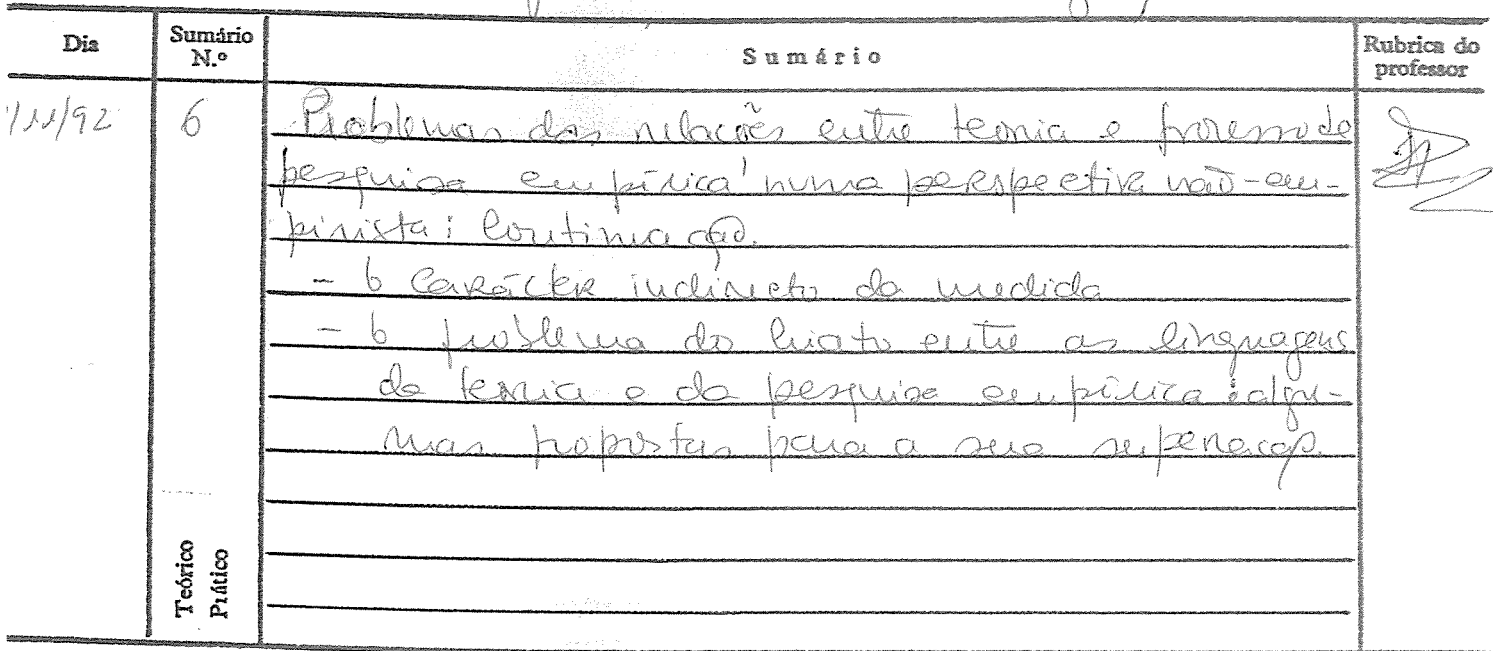 Dia Sumário N.º Sumário Rubrica do professor
/11/92 6 Problemas das relações entre teoria e processo de
pesquisa empírica numa perspectiva não-em-
pirista: Continuação.
- O carácter indirecto da medida
- O problema do hiato entre as linguagens
da teoria e da pesquisa empírica: algu-
mas propostas para a sua superação.
Teórico
Prático